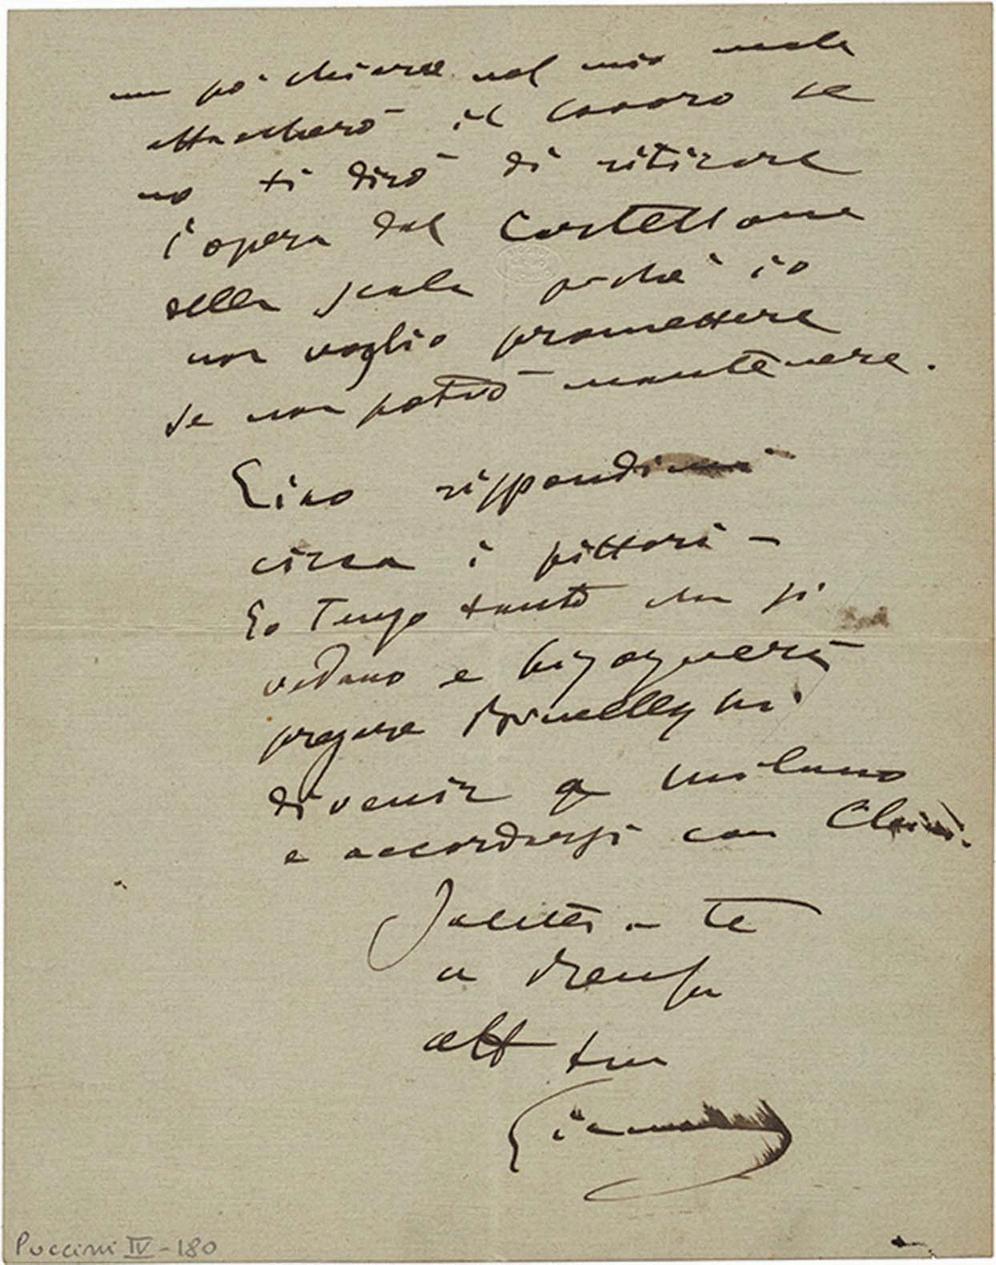 un po' chiaro nel mio male
attaccherò il lavoro se
no ti dirò di ritirare
l'opera dal Cartellone
della scala perchè io
non voglio promettere
se non potrò mantenere.
rispondimi
circa i pittori –
Io Tengo tanto che si
vedano e bisognerà
pregare Brunelleschi
di venire a Milano
e accordarsi con
Saluti a te
a Renzo
aff tuo
Giacomo
Puccini IV - 180